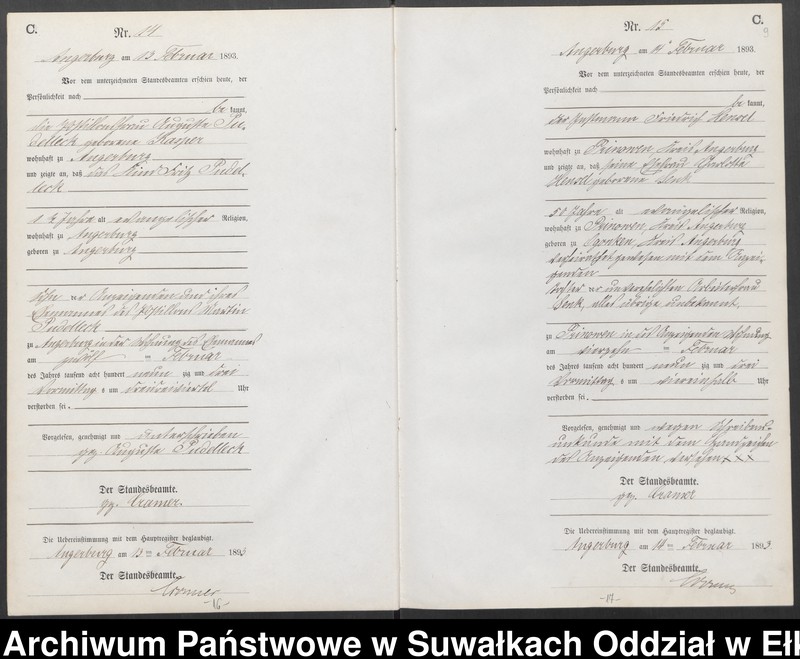 C.
Nr. 14
Angerburg am 13 Februar 1893.
Vor dem unterzeichneten Standesbeamten erschien heute, der
Persönlichkeit nach
be kannt,
die Postillonsfrau Auguste Pu-
delleck geborene Kasper
wohnhaft zu Angerburg
und zeigte an, daß das Kind Fritz Pudel-
leck
alt evangelischer Religion,
wohnhaft zu Angerburg
geboren zu Angerburg
Sohn der Anzeigenden und ihres
Ehemannes des Postillons Martin
Pudelleck
zu Angerburg in der Behausung des Ehemannes
am zwölf ten Februar
des Jahres tausend acht hundert neun zig und drei
Vormittag s um dreiviertel Uhr
verstorben sei.
Vorgelesen, genehmigt und unterschrieben
gez. Auguste Pudelleck
Der Standesbeamte.
gez. Cramer.
Die Uebereinstimmung mit dem Hauptregister beglaubigt.
Angerburg am 13 ten Februar 1893
Der Standesbeamte.
Cramer
-16-
C.
9
Nr. 15
Angerburg am 14 Februar 1893.
Vor dem unterzeichneten Standesbeamten erschien heute, der
Persönlichkeit nach
be kannt,
der Instmann Friedrich Hensel
wohnhaft zu Prinowen, Kreis Angerburg
und zeigte an, daß seine Ehefrau Charlotte
Hensel geborene Senk
50 Jahre alt evangelischer Religion,
wohnhaft zu Prinowen, Kreis Angerburg
geboren zu Ogonken, Kreis Angerburg
verheirathet gewesen mit dem Anzei-
genden
Tochter der unverehelichten Arbeiterfrau
Senk, alles übrige unbekannt.
zu Prinowen in des Anzeigenden Behausung
am vierzehn ten Februar
des Jahres tausend acht hundert neun zig und drei
Vormittag s um viereinhalb Uhr
verstorben sei.
Vorgelesen, genehmigt und wegen Schreibens-
unkunde mit dem Handzeichen
des Anzeigenden versehen XXX
Der Standesbeamte.
gez. Cramer
Die Uebereinstimmung mit dem Hauptregister beglaubigt.
Angerburg am 14 ten Februar 1893
Der Standesbeamte.
Cramer
-17-
Archiwum Państwowe w Suwałkach Oddział w Ełk